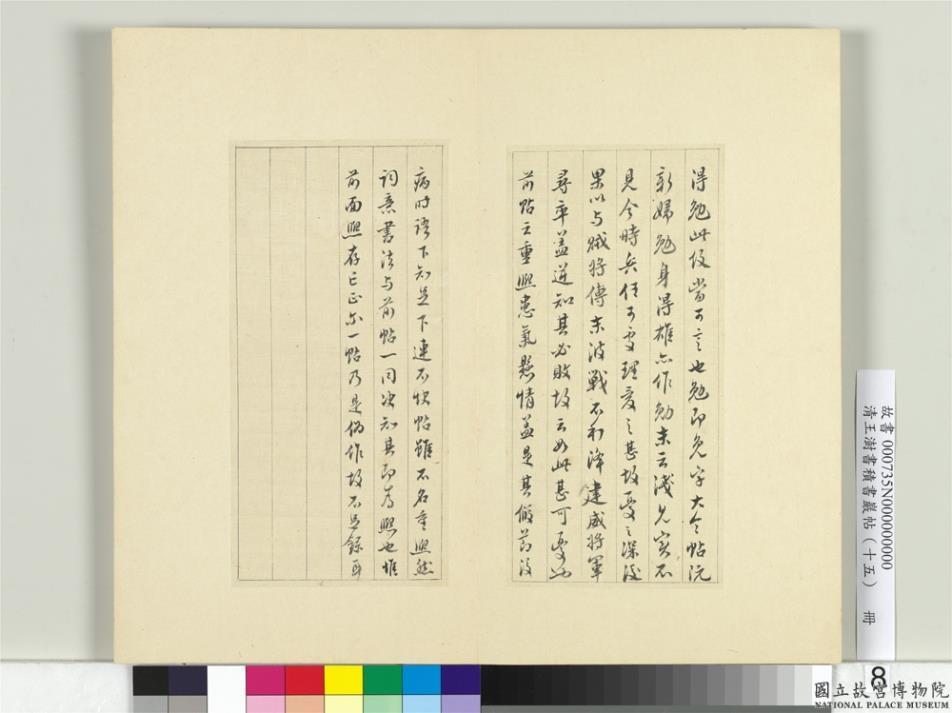 得勉此役當可言也勉即免字大令帖沅
新婦勉身得雄亦作勉末云淺見實不
見今時兵任可處理憂之甚故憂之深後
果以与賊將傅末波戰不利降建威將軍
尋卒蓋逆知其必敗故云如此甚可憂也
前帖云重熙患氣懸情蓋是其微前後
病時語下知足下連不快帖雖不名重熙然
詞意書法与前帖一同决知其即為熙也惟
前面熙存亡正尔一帖乃是偽作故不足錄耳
故書 000735N000000000
清王澍書積書巖帖（十五） 冊
8
國立故宮博物院
NATIONAL PALACE MUSEUM